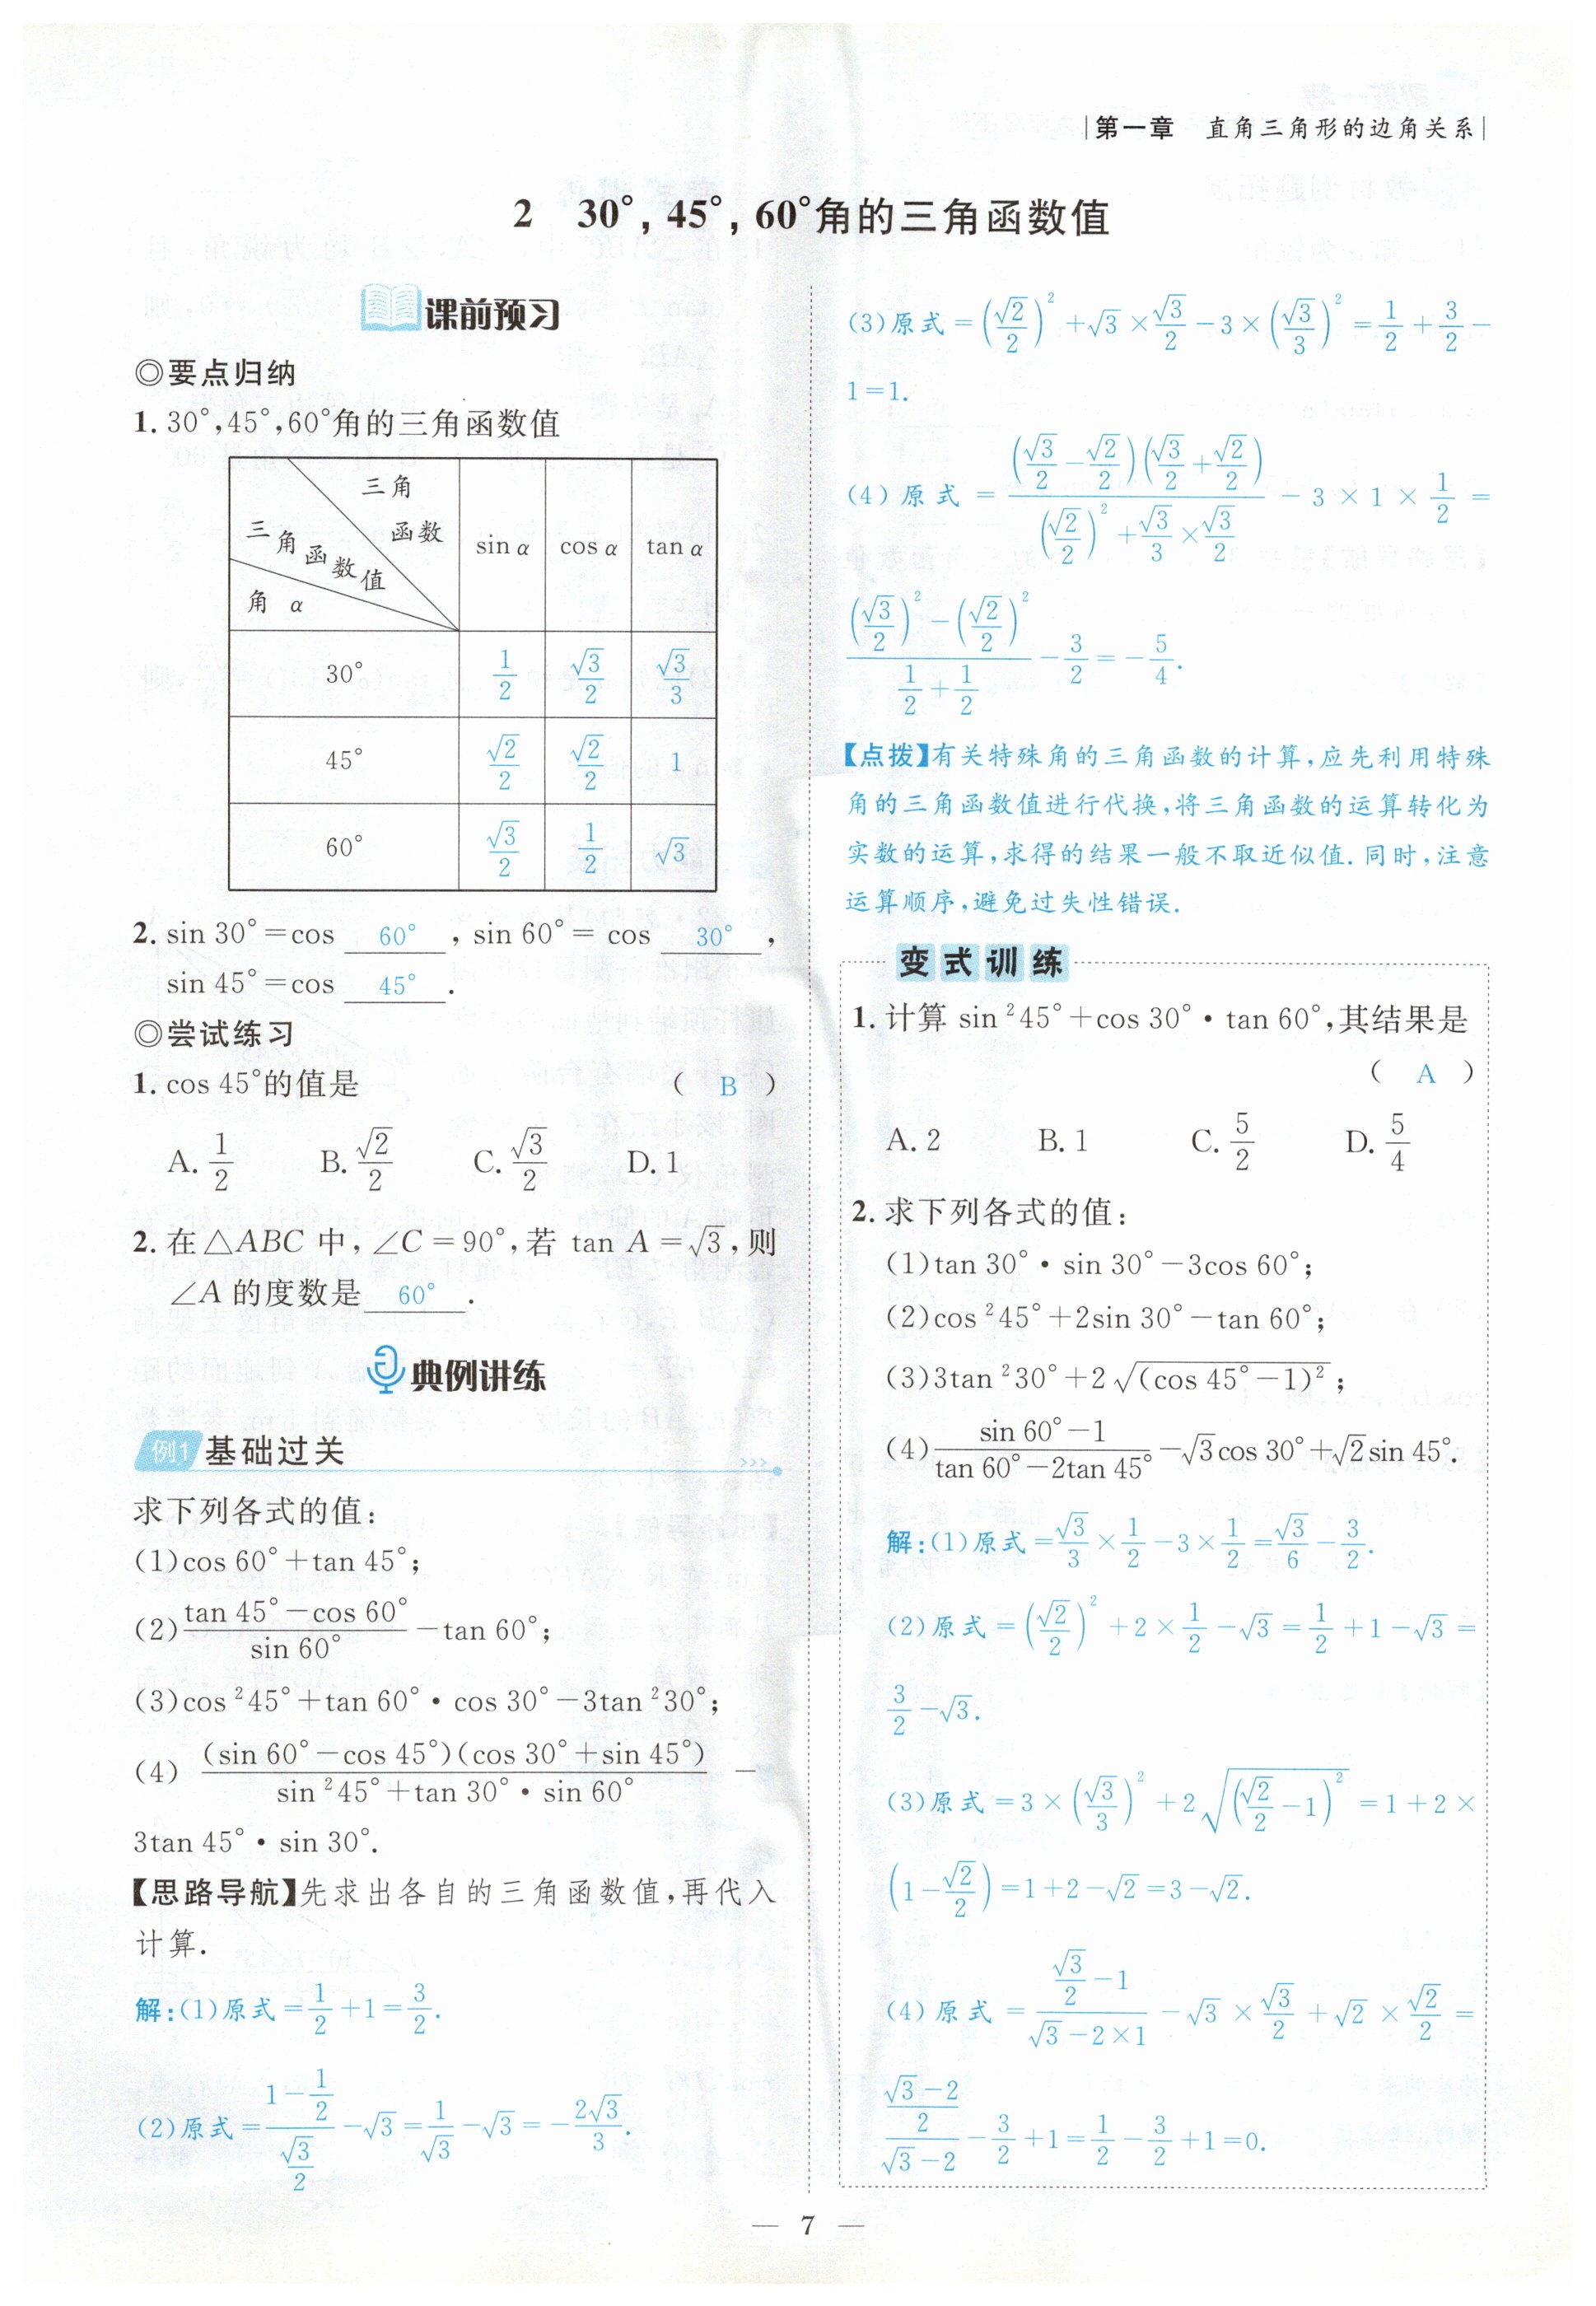 第一章 直角三角形的边角关系
2 30°,45°,60°角的三角函数值
课前预习
◎要点归纳
1. 30°,45°,60°角的三角函数值
三角函数 三角函数值 角 α sin α cos α tan α
30° 1/2 √3/2 √3/3
45° √2/2 √2/2 1
60° √3/2 1/2 √3
2. sin 30°=cos 60°, sin 60°= cos 30°,
sin 45°=cos 45°.
◎尝试练习
1. cos 45°的值是 ( B )
A. 1/2 B. √2/2 C. √3/2 D. 1
2. 在△ABC 中,∠C=90°,若 tan A=√3,则
∠A 的度数是 60°.
典例讲练
例1 基础过关
求下列各式的值:
(1)cos 60°+tan 45°;
(2)(tan 45°-cos 60°)/(sin 60°)-tan 60°;
(3)cos²45°+tan 60°·cos 30°-3tan²30°;
(4) ((sin 60°-cos 45°)(cos 30°+sin 45°))/(sin²45°+tan 30°·sin 60°) -
3tan 45°·sin 30°.
【思路导航】先求出各自的三角函数值,再代入
计算.
解:(1)原式=1/2+1=3/2.
(2)原式=(1-1/2)/(√3/2)-√3=1/√3-√3=-2√3/3.
(3)原式=(√2/2)²+√3×√3/2-3×(√3/3)²=1/2+3/2-
1=1.
(4)原式=((√3/2-√2/2)(√3/2+√2/2))/((√2/2)²+√3/3×√3/2)-3×1×1/2=
((√3/2)²-(√2/2)²)/(1/2+1/2)-3/2=-5/4.
【点拨】有关特殊角的三角函数的计算,应先利用特殊
角的三角函数值进行代换,将三角函数的运算转化为
实数的运算,求得的结果一般不取近似值.同时,注意
运算顺序,避免过失性错误.
变式训练
1. 计算 sin²45°+cos 30°·tan 60°,其结果是
( A )
A. 2 B. 1 C. 5/2 D. 5/4
2. 求下列各式的值:
(1)tan 30°·sin 30°-3cos 60°;
(2)cos²45°+2sin 30°-tan 60°;
(3)3tan²30°+2√((cos 45°-1)²);
(4)(sin 60°-1)/(tan 60°-2tan 45°)-√3cos 30°+√2sin 45°.
解:(1)原式=√3/3×1/2-3×1/2=√3/6-3/2.
(2)原式=(√2/2)²+2×1/2-√3=1/2+1-√3=
3/2-√3.
(3)原式=3×(√3/3)²+2√((√2/2-1)²)=1+2×
(1-√2/2)=1+2-√2=3-√2.
(4)原式=(√3/2-1)/(√3-2×1)-√3×√3/2+√2×√2/2=
((√3-2)/2)/(√3-2)-3/2+1=1/2-3/2+1=0.
— 7 —